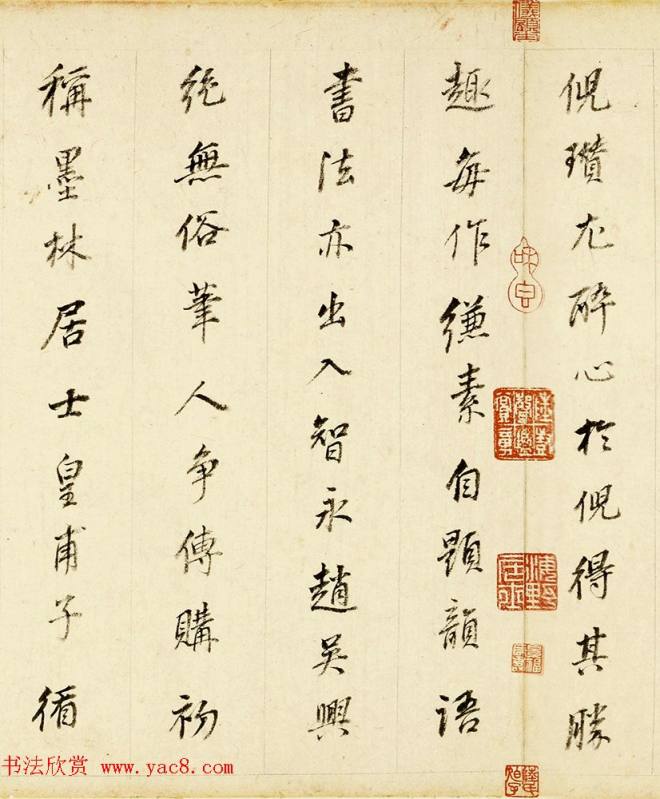 倪瓚尤醉心於倪得其勝
趣每作縑素自題韻語
書法亦出入智永趙吳興
絶無俗筆人争傳購初
稱墨林居士皇甫子循
书法欣赏 www.yac8.com